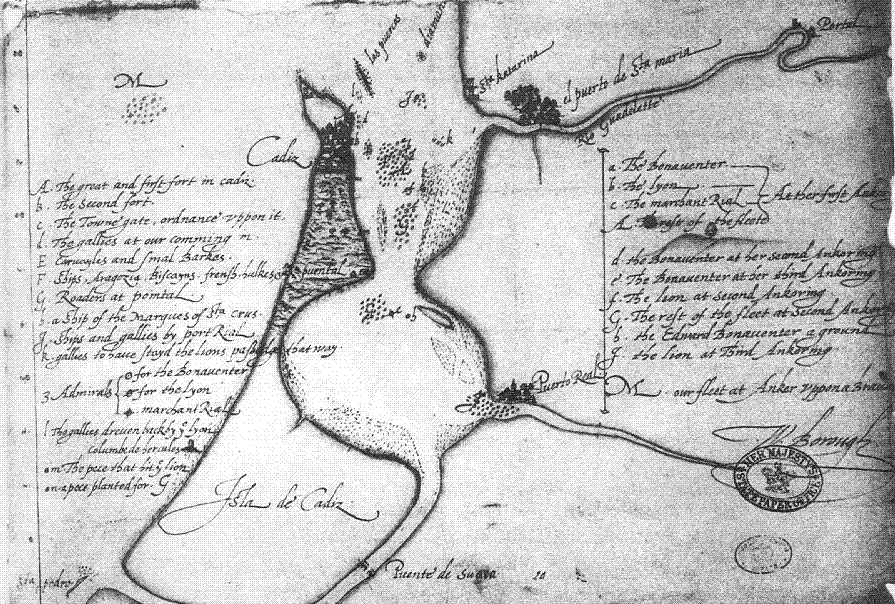 las puercas
Sta katarina
el puerto de Sta maria
Rio Guadelette
Portal
M
Cadiz
A. The great and first fort in cadiz
b. The second fort.
c. The Towne gate, ordnance vppon it.
d. The gallies at our comming in.
E Carvoyles and smal Barkes.
F. Ships, Aragozia, Biscayns, frensh, hulkes
G. Roaders at pointal
h. a Ship of the Marques of Sta crus.
J. Ships and gallies by port Rial
k gallies to have stayd the lions passadge that way.
3 Admirals
for the Bonaventer
for the Lyon
marchant Rial
l The gallies dreven back by ye lyon
Columbe de hercules
m The pece that hit ye lion
n a pece planted for G
puental
a. The Bonaventer
b. The lyon
c. The marchant Rial
At ther first
A. The rest of the fleete
d. the Bonaventer at her second Ankoring
e. The Bonaventer at her third Ankoring
f. The lion at second Ankoring
C. The rest of the fleet at Second
h. the Edward Bonaventer a ground
J. the lion at Third Ankoring
M. our fleet at Anker vppon a
Puerto Real
W Borough
HER MAJESTY'S STATE PAPER OFFICE
Isla de Cadiz
Puente de Suaço
20